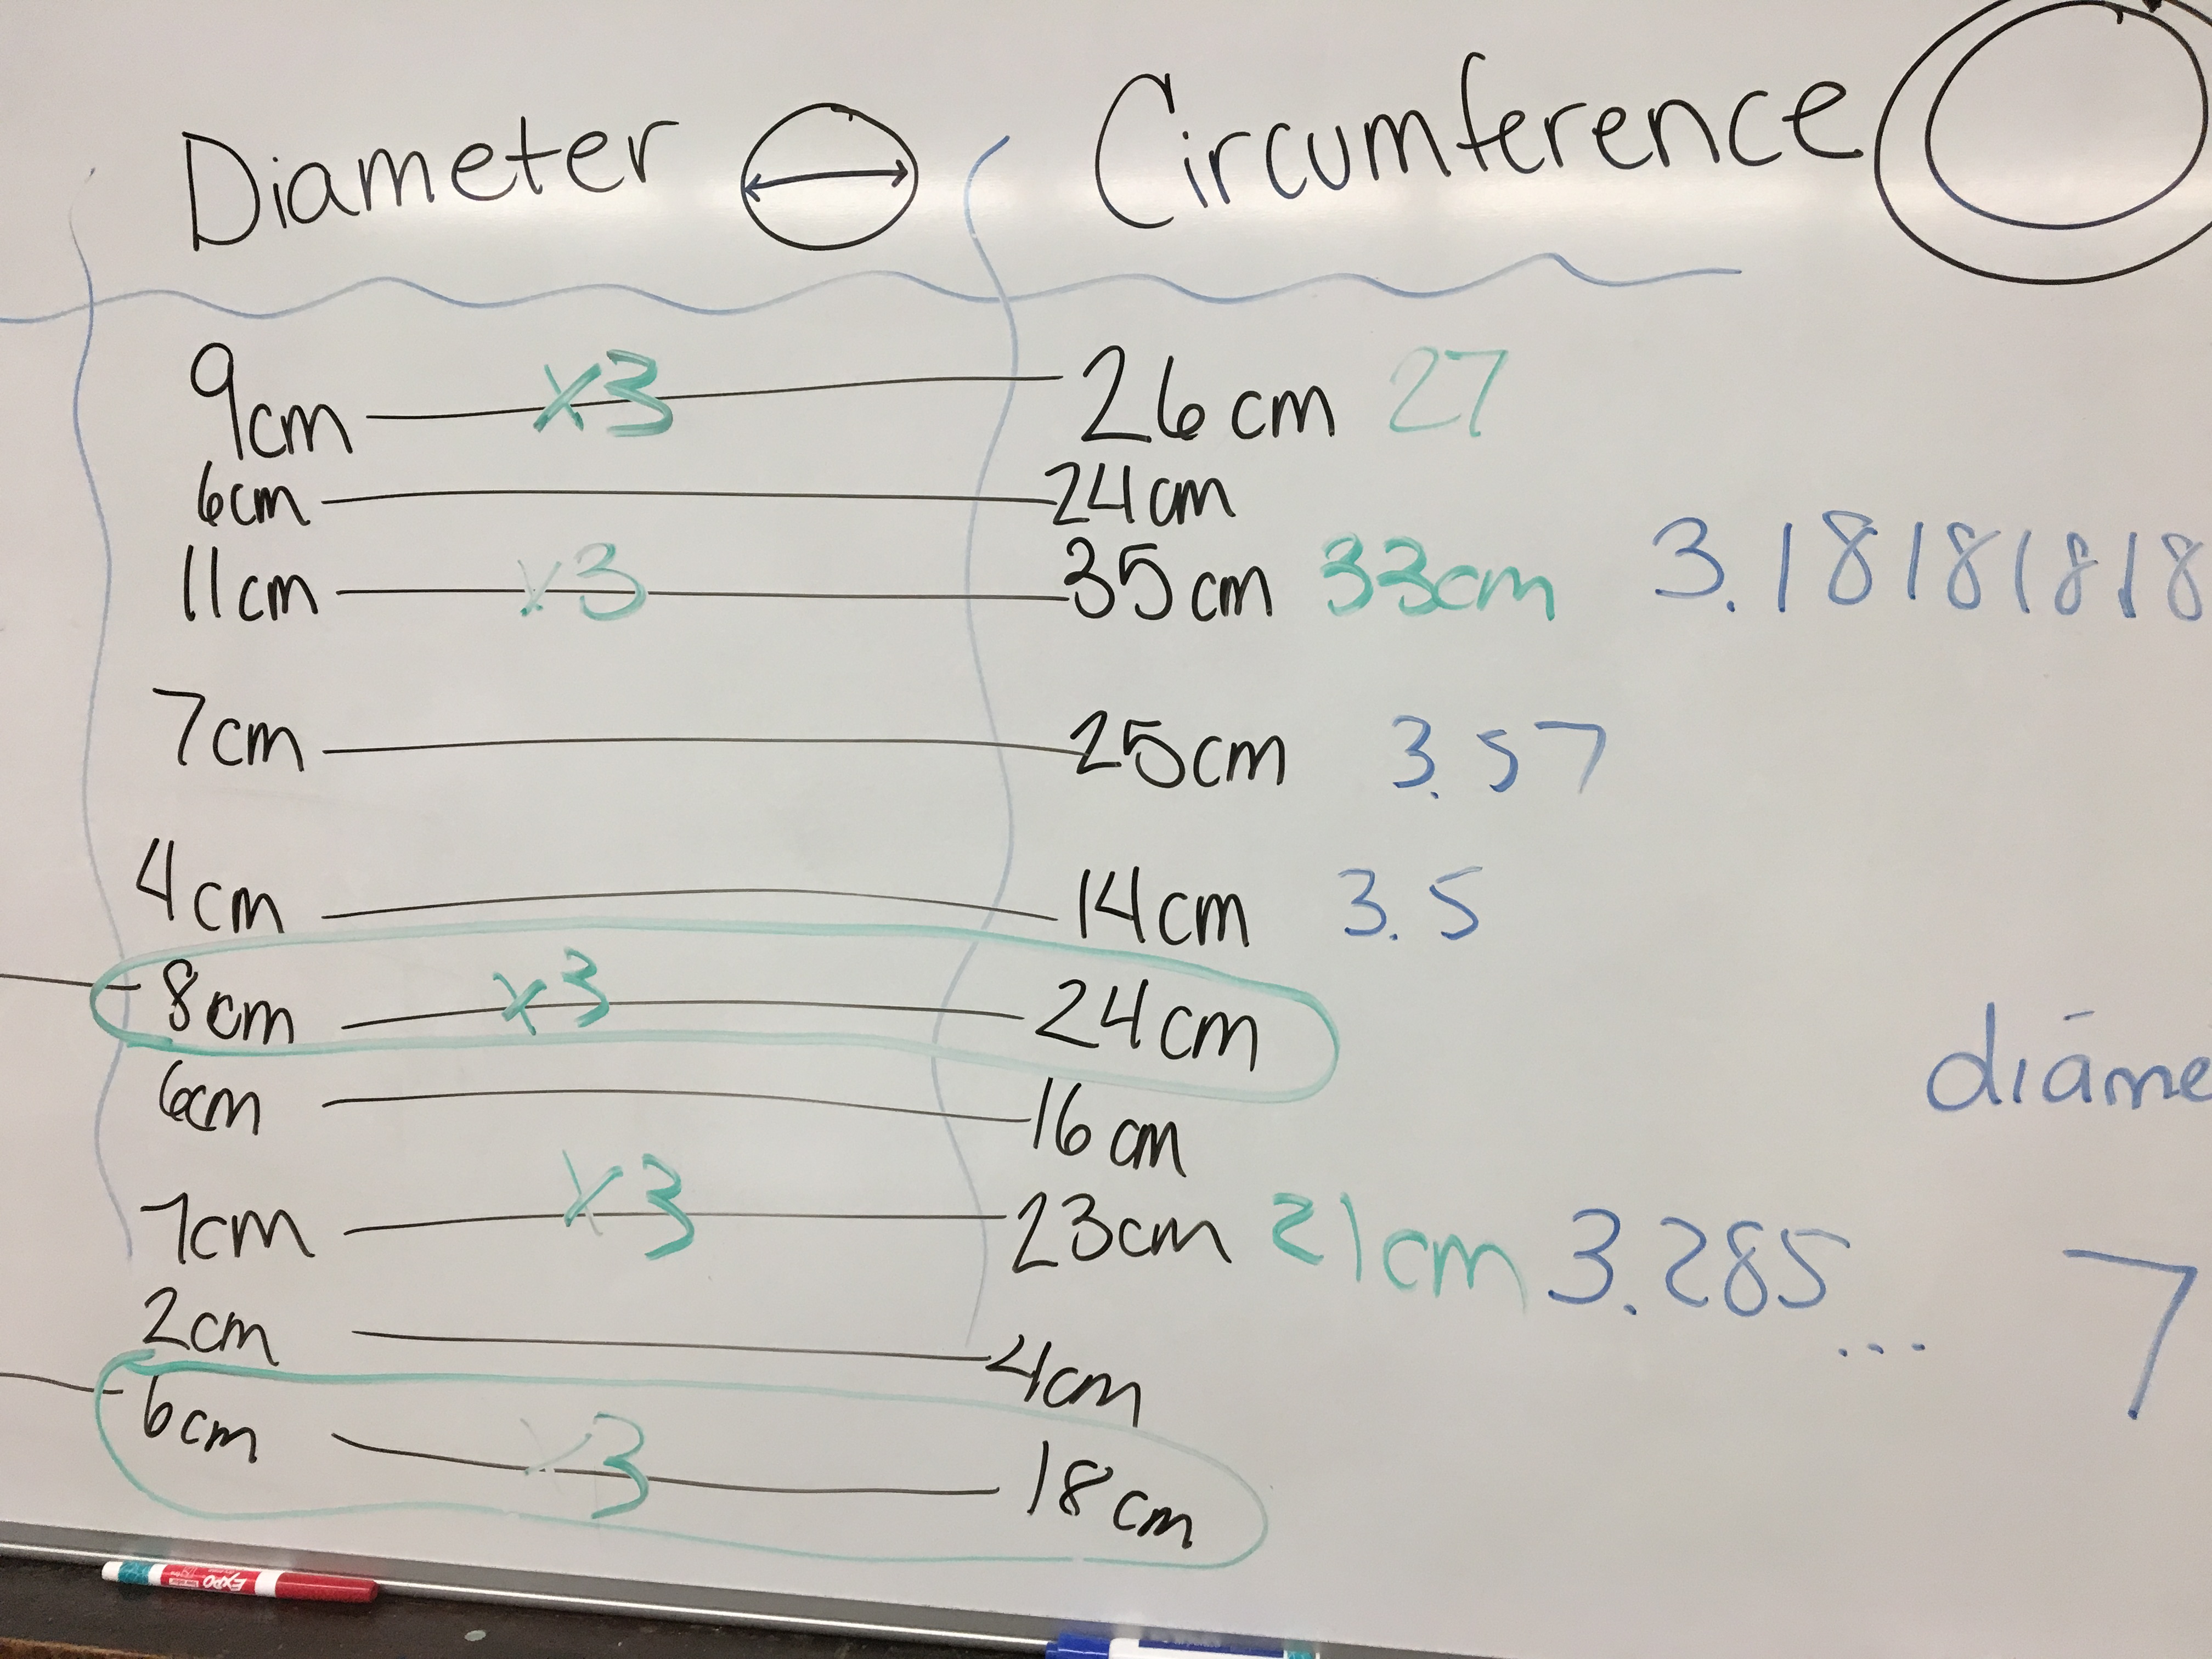 Diameter Circumference
9cm x3 26cm 27
6cm 24cm
11cm x3 35cm 33cm 3.18181818
7cm 25cm 3.57
4cm 14cm 3.5
8cm x3 24cm
diáme
6cm 16cm
7cm x3 23cm 21cm 3.285... 7
2cm 4cm
6cm x3 18cm
EXPO